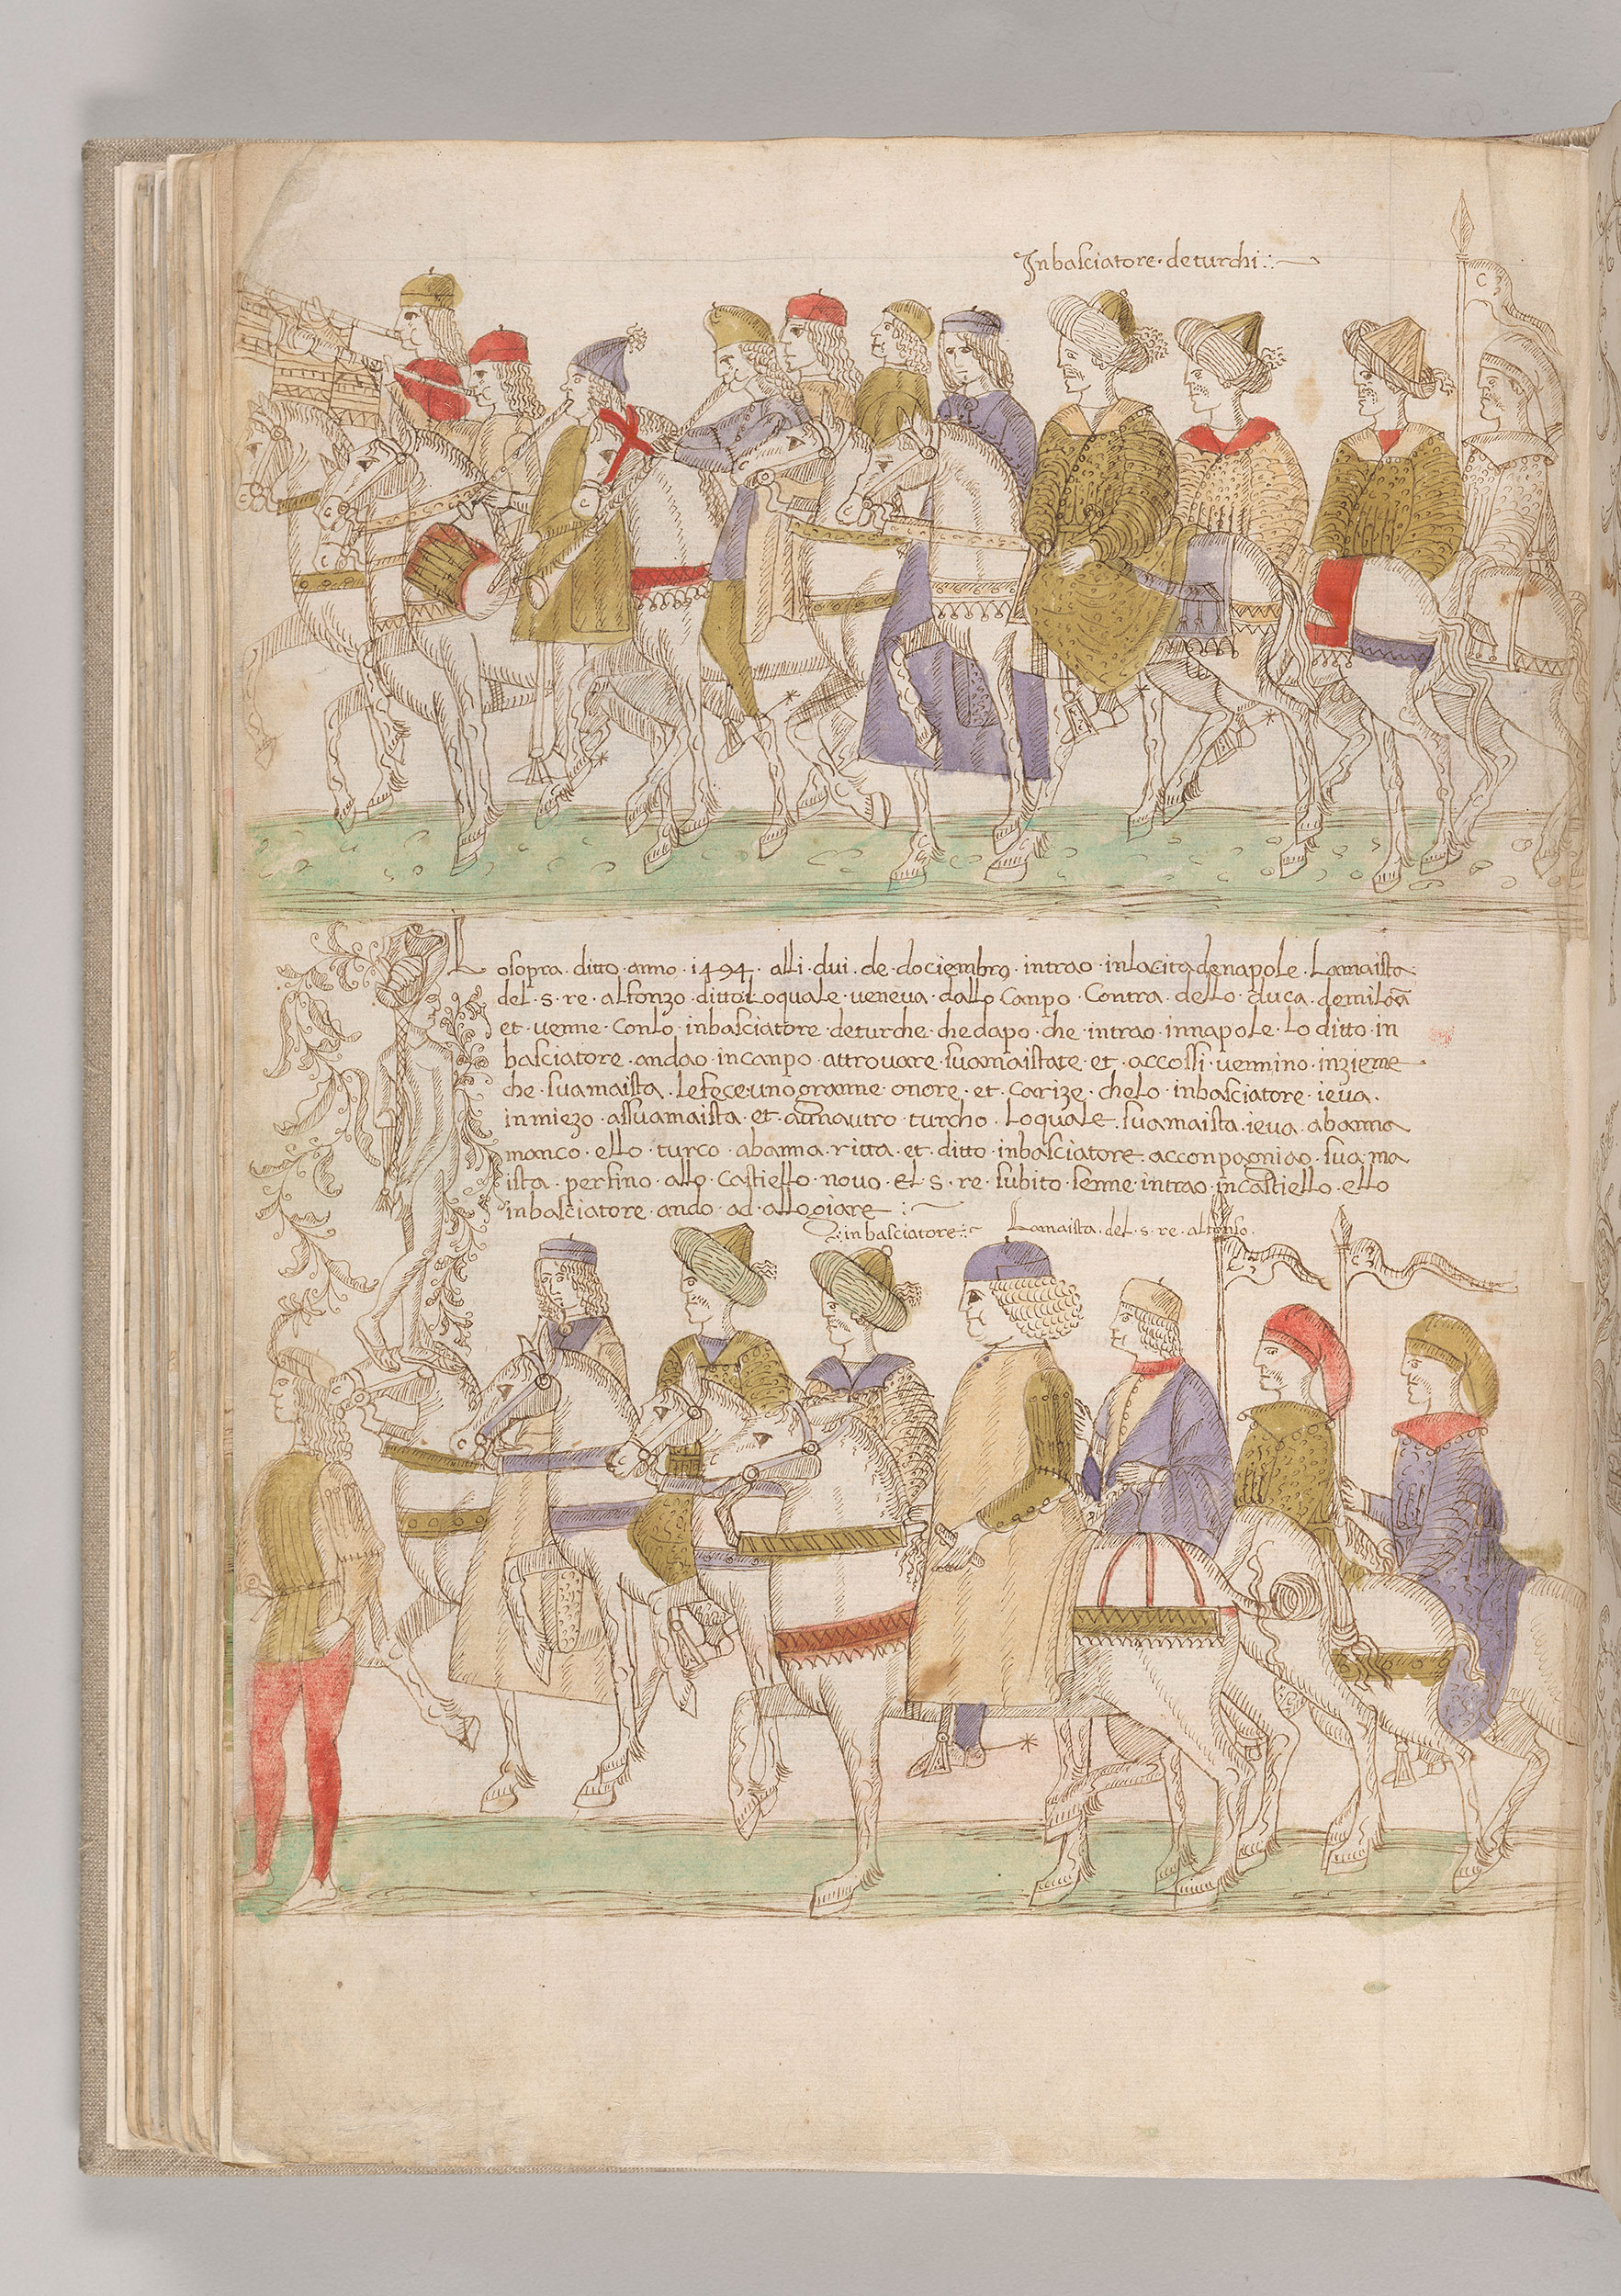 Inbasciatore · deturchi ·:·
Losopra · ditto · anno · 1494 · alli · dui · de · dociembro · intrao · inlacita denapole · Lamaista
del · s · re · alfonzo · ditto loquale · veneva · dallo Canpo · Contra · dello · duca · demiloā
et · venne · Conlo · inbasciatore · deturche · chedapo · che · intrao · innapole · Lo ditto · in
basciatore · andao · incanpo · attrovare · suamaistate · et · accossi · vennino · inzieme
che · suamaista · Lefece · uno granne · onore · et · Carize · chelo · inbasciatore · ieva ·
inmiezo · assuamaista · et · aūnautro · turcho · Loquale · suamaista · ieva · abanna
manco · ello · turco · abanna · ritta · et · ditto · inbasciatore · acconpagniao · sua ma
ista · perfino · allo · Castiello · novo · El · s · re · subito · senne · intrao · incastiello · ello
inbasciatore · ando · ad · allogiare ·:·
·:· inbasciatore ·:· Lamaista · del · s · re · alfonso ·